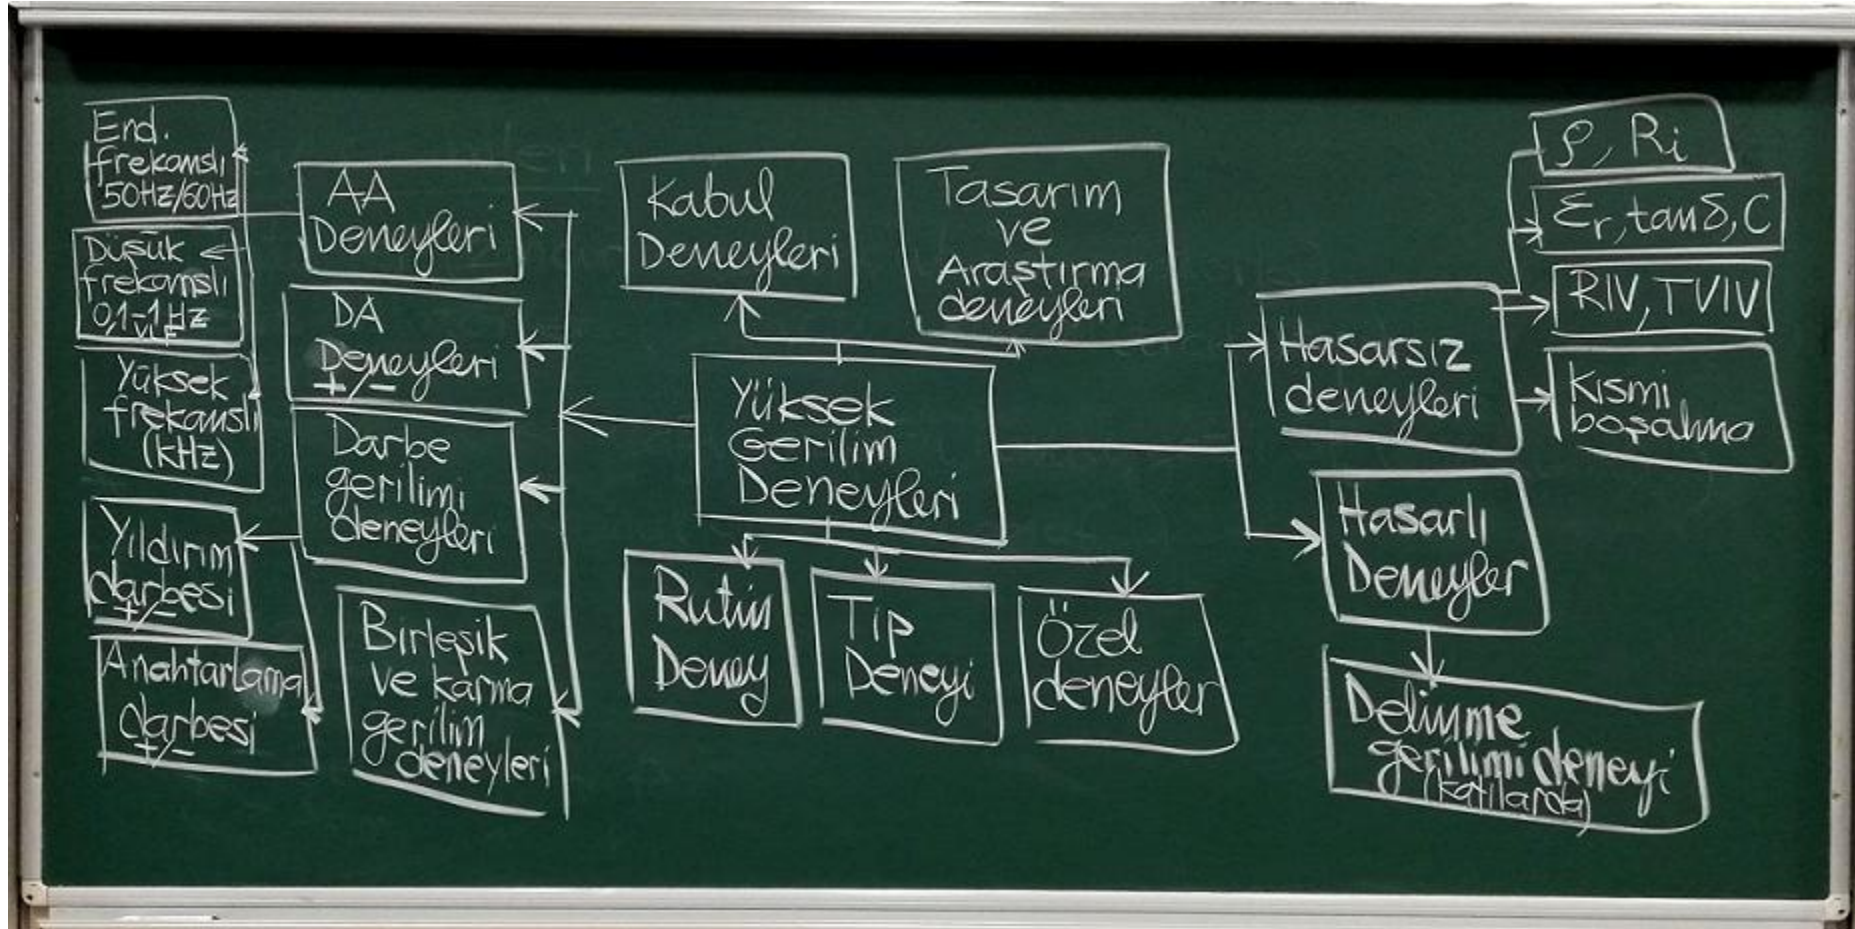 End.
frekanslı
50Hz/60Hz
Düşük
frekanslı
0,1-1Hz
VLF
Yüksek
frekanslı
(kHz)
Yıldırım
darbesi
+/-
Anahtarlama
darbesi
+/-
AA
Deneyleri
DA
Deneyleri
+/-
Darbe
gerilimi
deneyleri
Birleşik
ve karma
gerilim
deneyleri
Kabul
Deneyleri
Tasarım
ve
Araştırma
deneyleri
Yüksek
Gerilim
Deneyleri
Rutin
Deney
Tip
Deneyi
Özel
deneyler
Hasarsız
deneyleri
Hasarlı
Deneyler
Delinme
gerilimi deneyi
(katılarda)
ρ, Ri
εr, tanδ, C
RIV, TVIV
Kısmi
boşalma